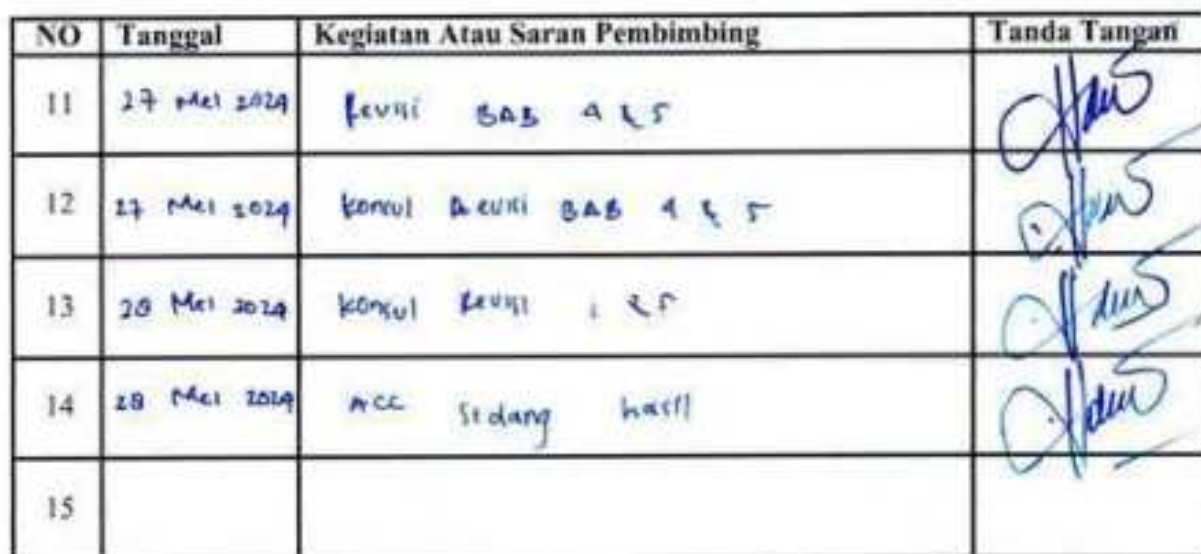 NO Tanggal Kegiatan Atau Saran Pembimbing Tanda Tangan
11 27 Mei 2024 Revisi BAB 4 & 5
12 27 Mei 2024 Konsul Revisi BAB 4 & 5
13 28 Mei 2024 Konsul Revisi & 5
14 28 Mei 2024 ACC Sidang hasil
15